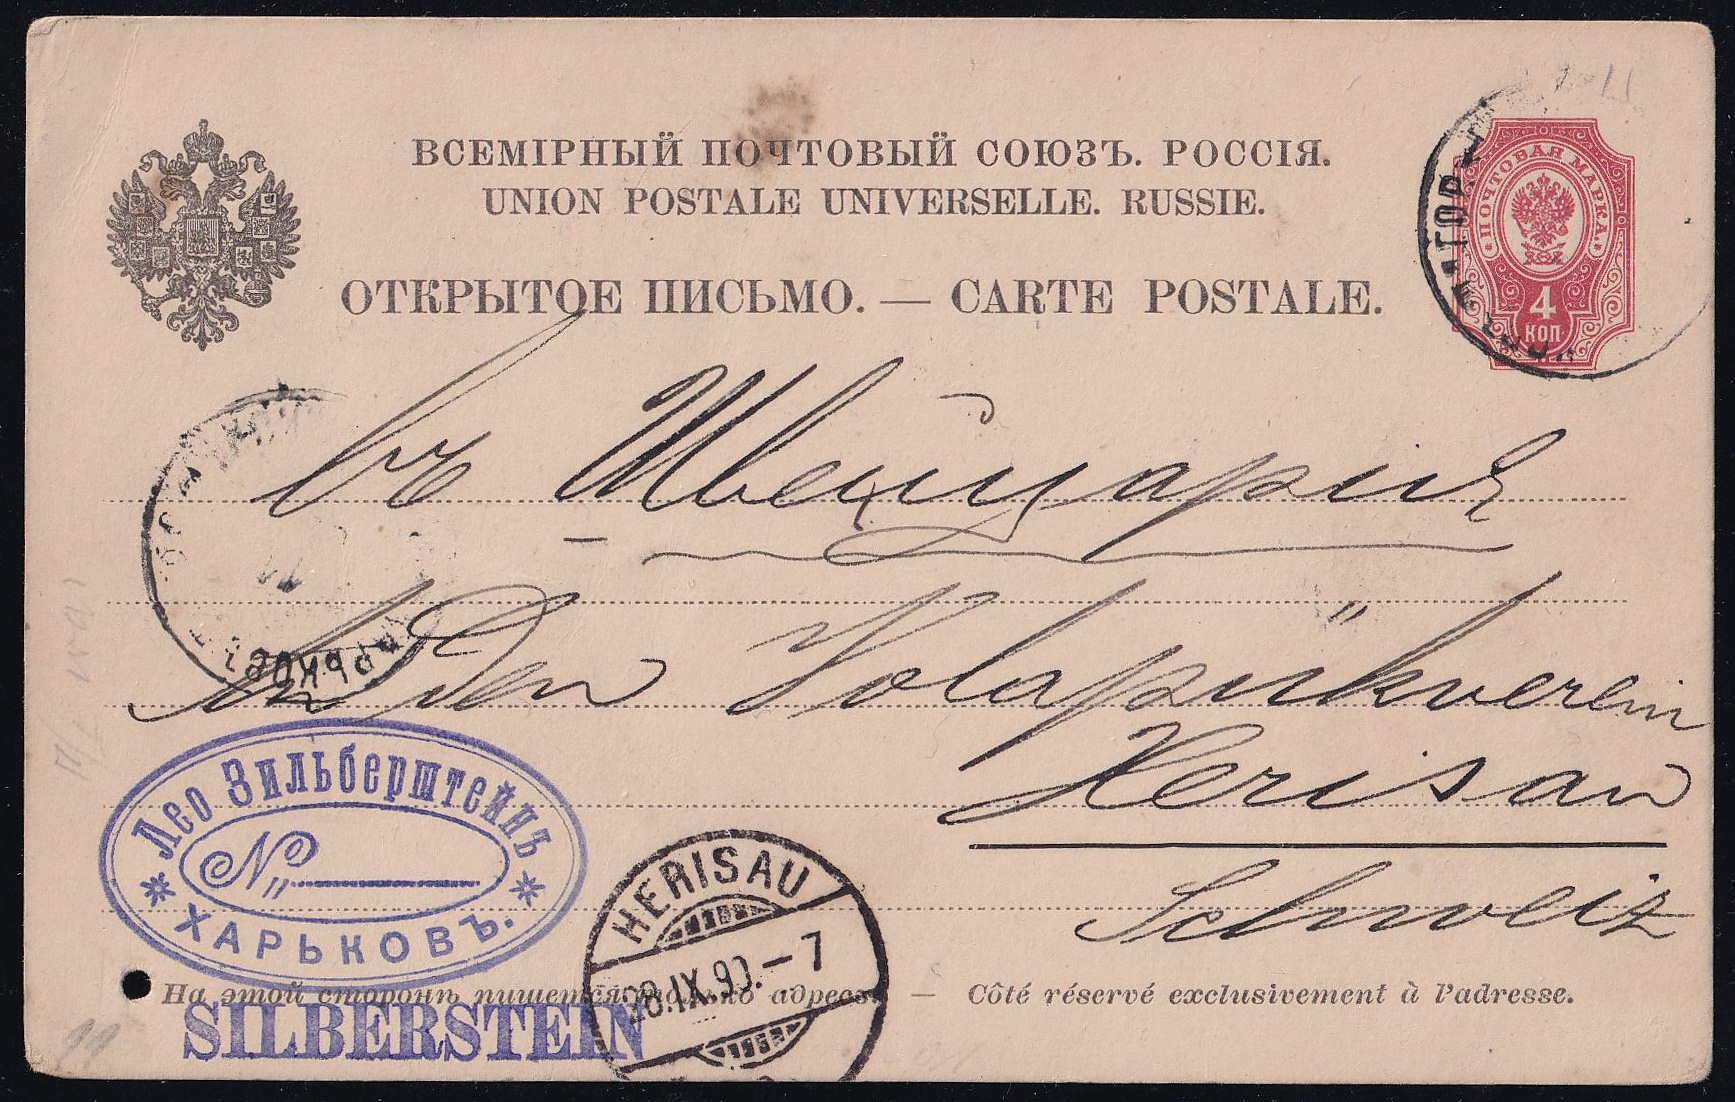 ВСЕМІРНЫЙ ПОЧТОВЫЙ СОЮЗЪ. РОССІЯ.
UNION POSTALE UNIVERSELLE. RUSSIE.
ОТКРЫТОЕ ПИСЬМО. — CARTE POSTALE.
ПОЧТОВАЯ МАРКА.
4
КОП
въ Швейцарію
An den Volapükverein
Herisau
Schweiz
ХАРЬКОВЪ
Лео Зильберштейнъ
№
ХАРЬКОВЪ.
HERISAU
28.IX.90.–7
На этой сторонѣ пишется только адресъ. — Côté réservé exclusivement à l'adresse.
SILBERSTEIN